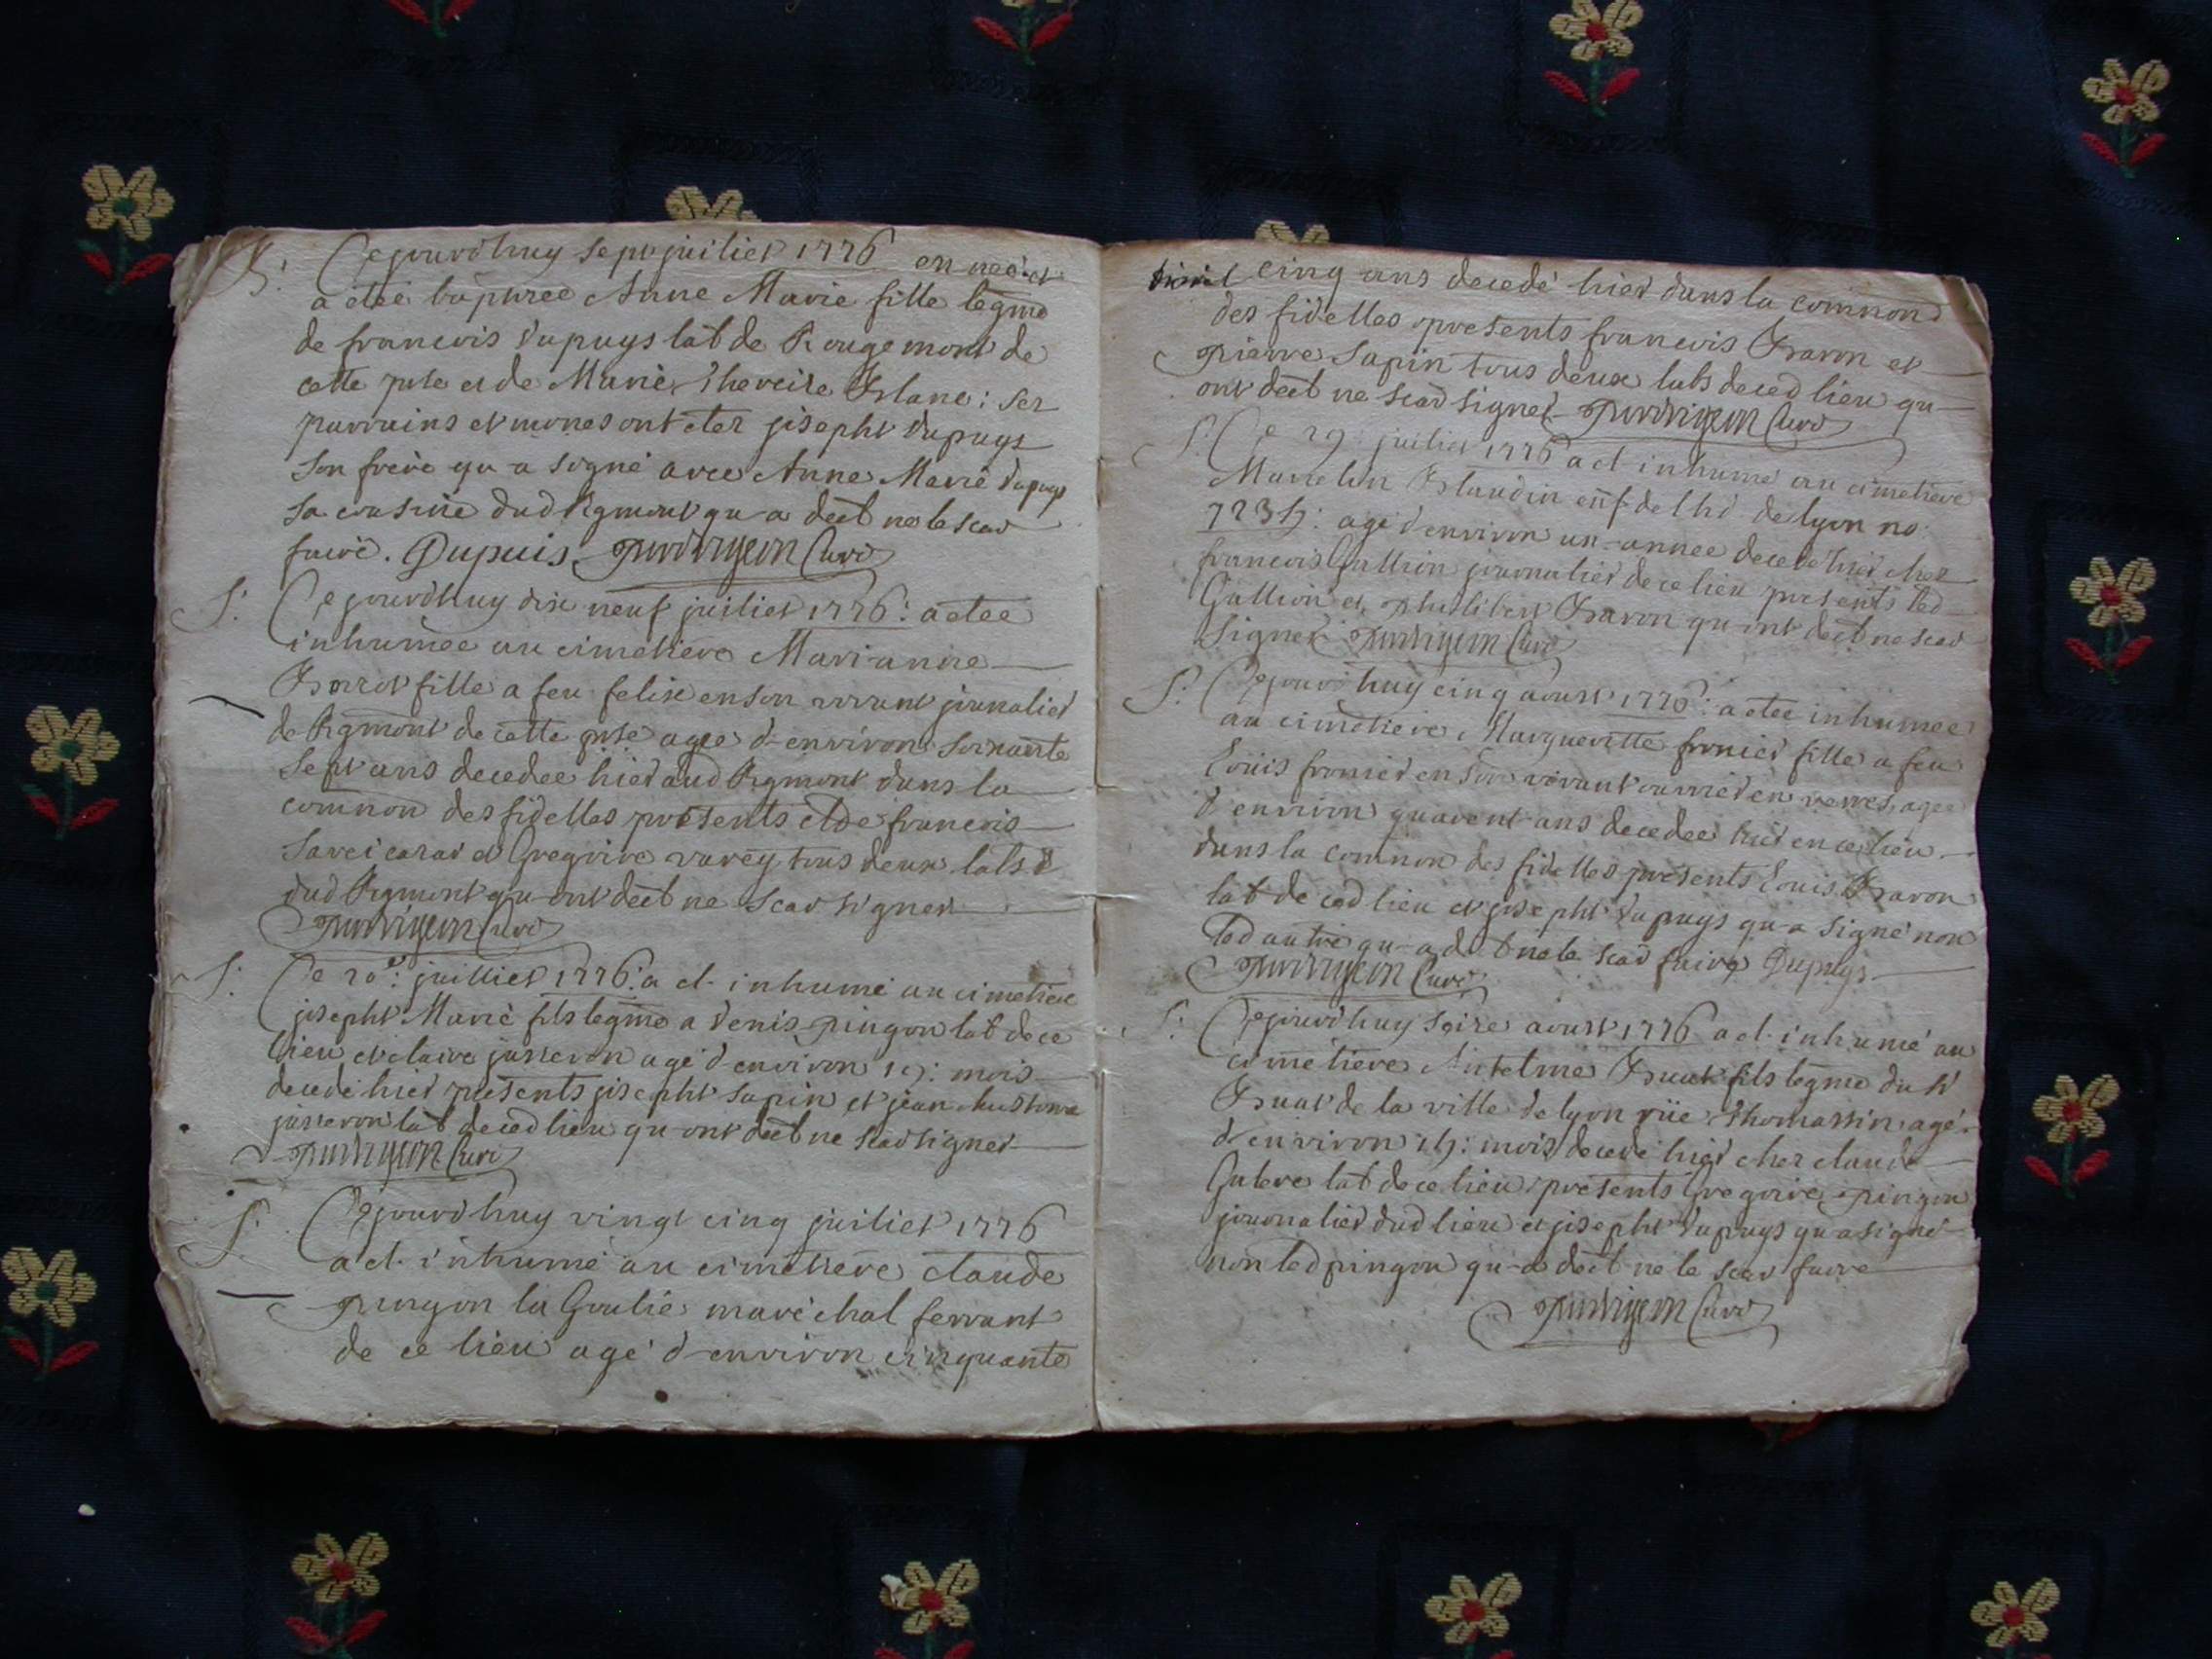 B: Cejourdhuy sept juilliet 1776 en née et
a etée baptizee Anne Marie fille legme
de francois dupuys lab de Rougemont de
cette psse et de Marie Thereise Blanc: ses
parrains et mones ont etez joseph dupuys
son frere qu-a signé avec Anne Marie dupuys
sa cousine dud Rgmont qu-a decl ne le scav
faire. Dupuis Curé
S: Cejourdhuy dix neuf juiliet 1776: a etee
inhumée au cimetiere Marianne
fille a feu felix en son vivant journalier
de Rgmont de cette psse agee d-environ soixante
sept ans decedee hier aud Rgmont dans la
comnon des fidelles présents et de francois
et Gregoire varey tous deux labs
dud Rgmont qu-ont decl ne scav signer
Curé
S: Ce 20e: juilliet 1776: a et. inhumé au cimetiere
joseph Marie fils legme a denis pingon lab de ce
lieu et claire jusseron agé d-environ mois
decedé hier présents joseph sapin et jean
jusseron lab de ced lieu qu-ont decl ne scav signer
Curé
S: Cejourdhuy vingt cinq juiliet 1776
a et. inhumé au cimetiere claude
pingon la Goulie maréchal ferrant
de ce lieu agé d-environ cinquante
cinq ans decedé hier dans la comnon
des fidelles présents francois Baron et
pierre sapin tous deux labs de ced lieu qu-
ont decl ne scav signer Curé
S: Ce 29: juiliet 1776 a et inhumé au cimetiere
Blandin enf de lhd de lyon no:
agé d-environ un-année decedé hier chez
francois Gallion journalier de ce lieu présents led
Gallion et philibert Baron qu-ont decl ne scav
signer Curé
S: Cejourdhuy cinq aoust 1776: a etee inhumee
au cimetiere Margueritte fronier fille a feu
Louis fronier en son vivant ouvrier en verres, agee
d'environ quarent-ans decedee hier en ce lieu
dans la comnon des fidelles présents Louis Baron
lab de ced lieu et joseph dupuys qu-a signé non
led autre qu-a decl ne le scav faire Dupuys
Curé
S: Cejourdhuy seize aoust 1776 a et. inhumé au
cimetiere Antelme Buat fils legme du Sr
Buat de la ville de lyon rüe Thomassin, agé
d-environ mois, decedé hier chez claude
lab de ce lieu présents Gregoire pingon
journalier dud lieu et joseph dupuys qu a signé
non led pingon qu-a decl ne le scav faire
Curé